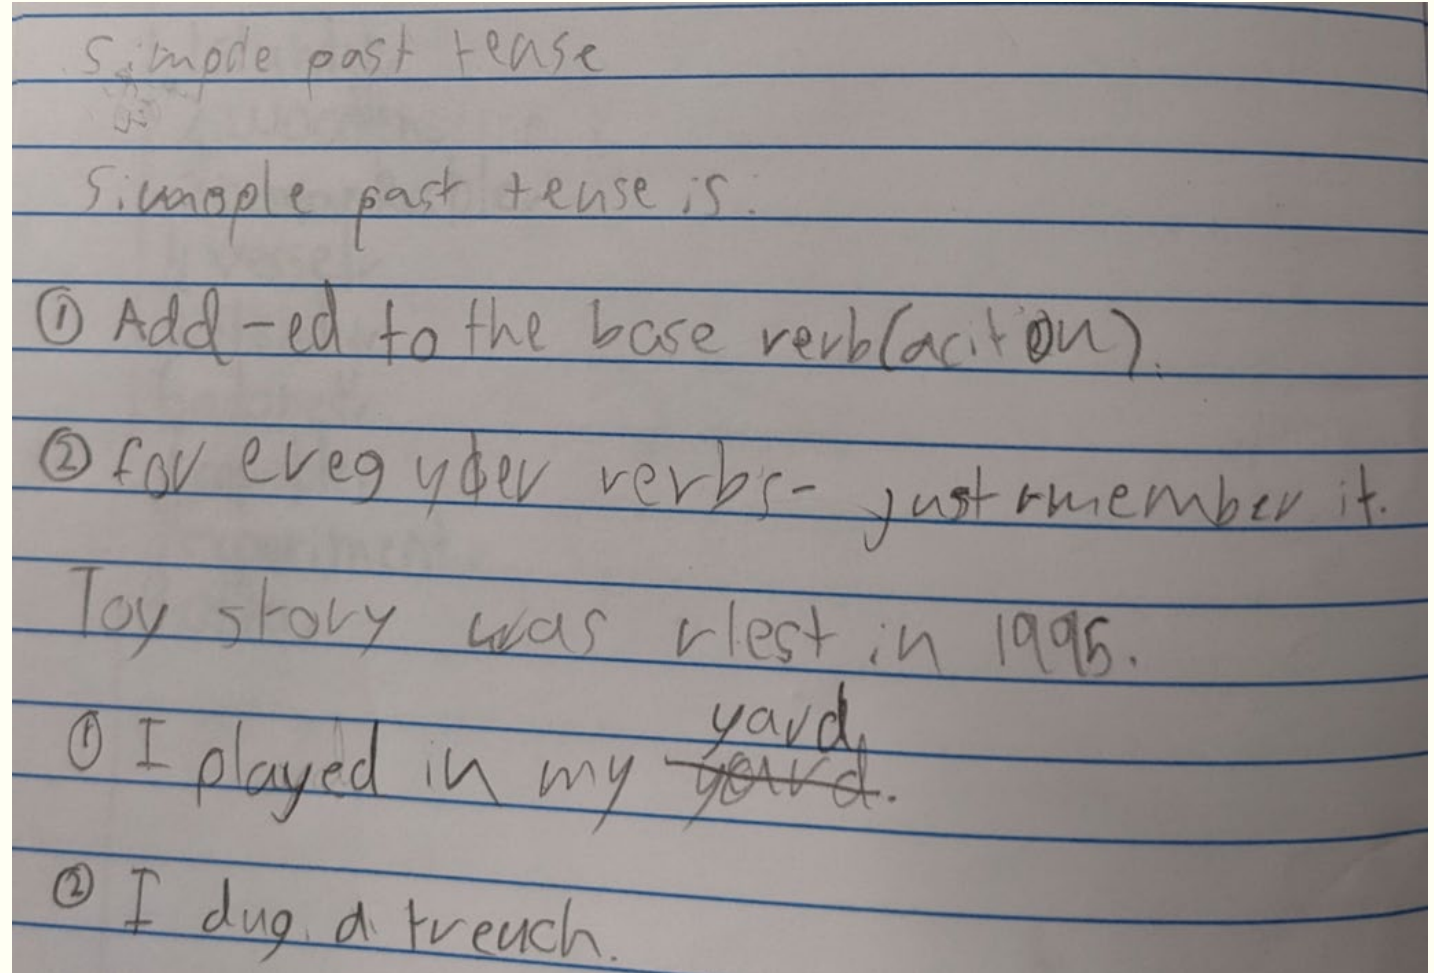 Simple past tense
Simople past tense is:
① Add -ed to the base verb(aciton).
② for eregyder verbs- just rmember it.
Toy story was rlest in 1995.
① I played in my yard.
② I dug a trench.